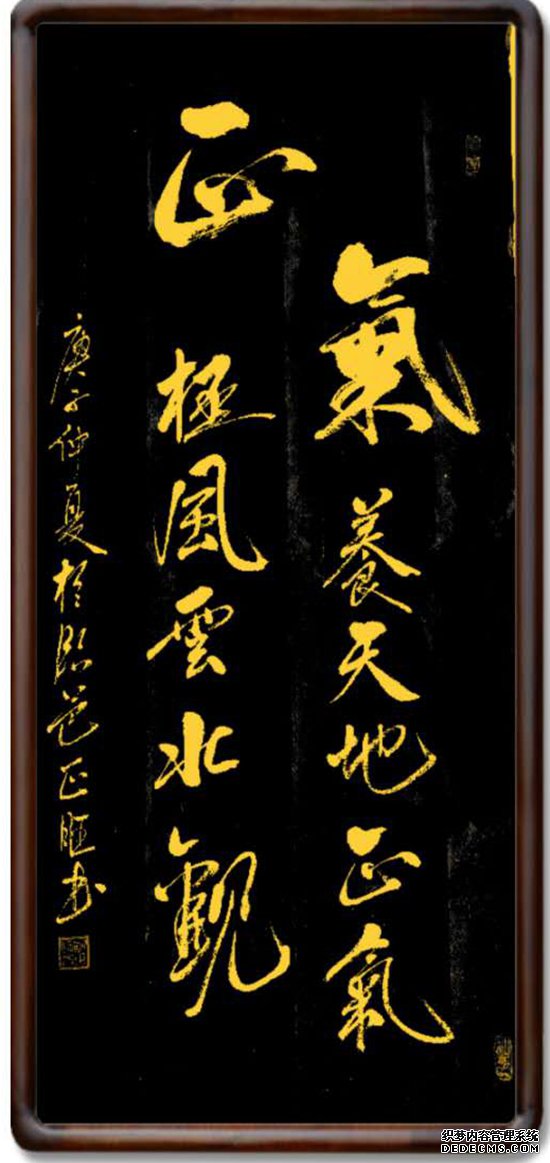 正
氣
養天地正氣
極風雲壯觀
庚子仲夏於臨邑正书
织梦内容管理系统
DEDECMS.COM